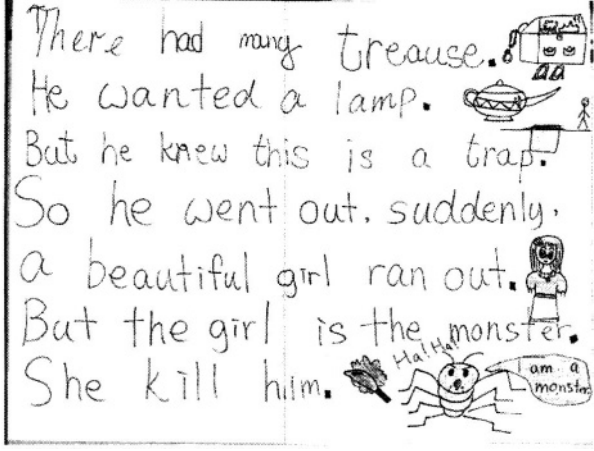 There had many treause.
He wanted a lamp.
But he knew this is a trap.
So he went out, suddenly,
a beautiful girl ran out.
But the girl is the monster.
Ha! Ha!
She kill him.
I am a
monster